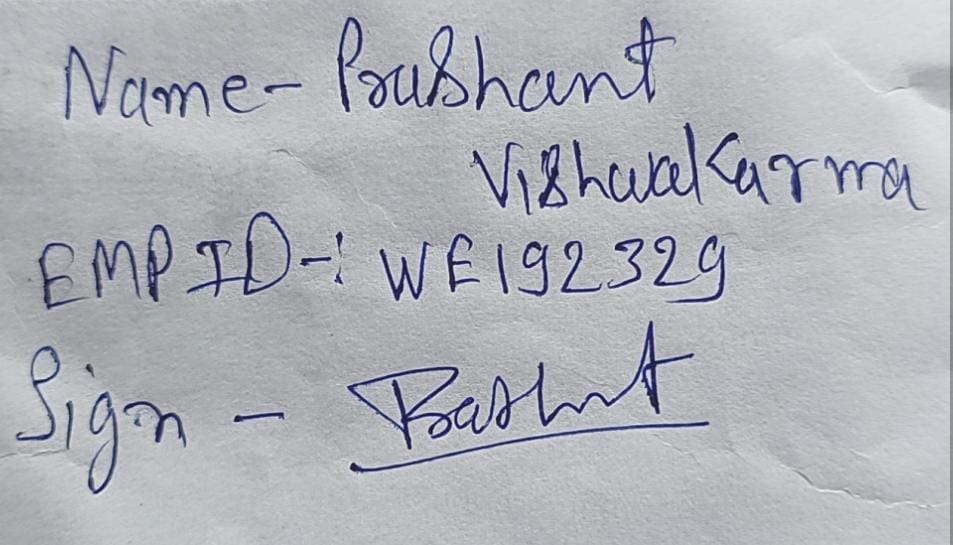 Name- Prashant
Vishwakarma
EMP ID-: WE192329
Sign - Prashant